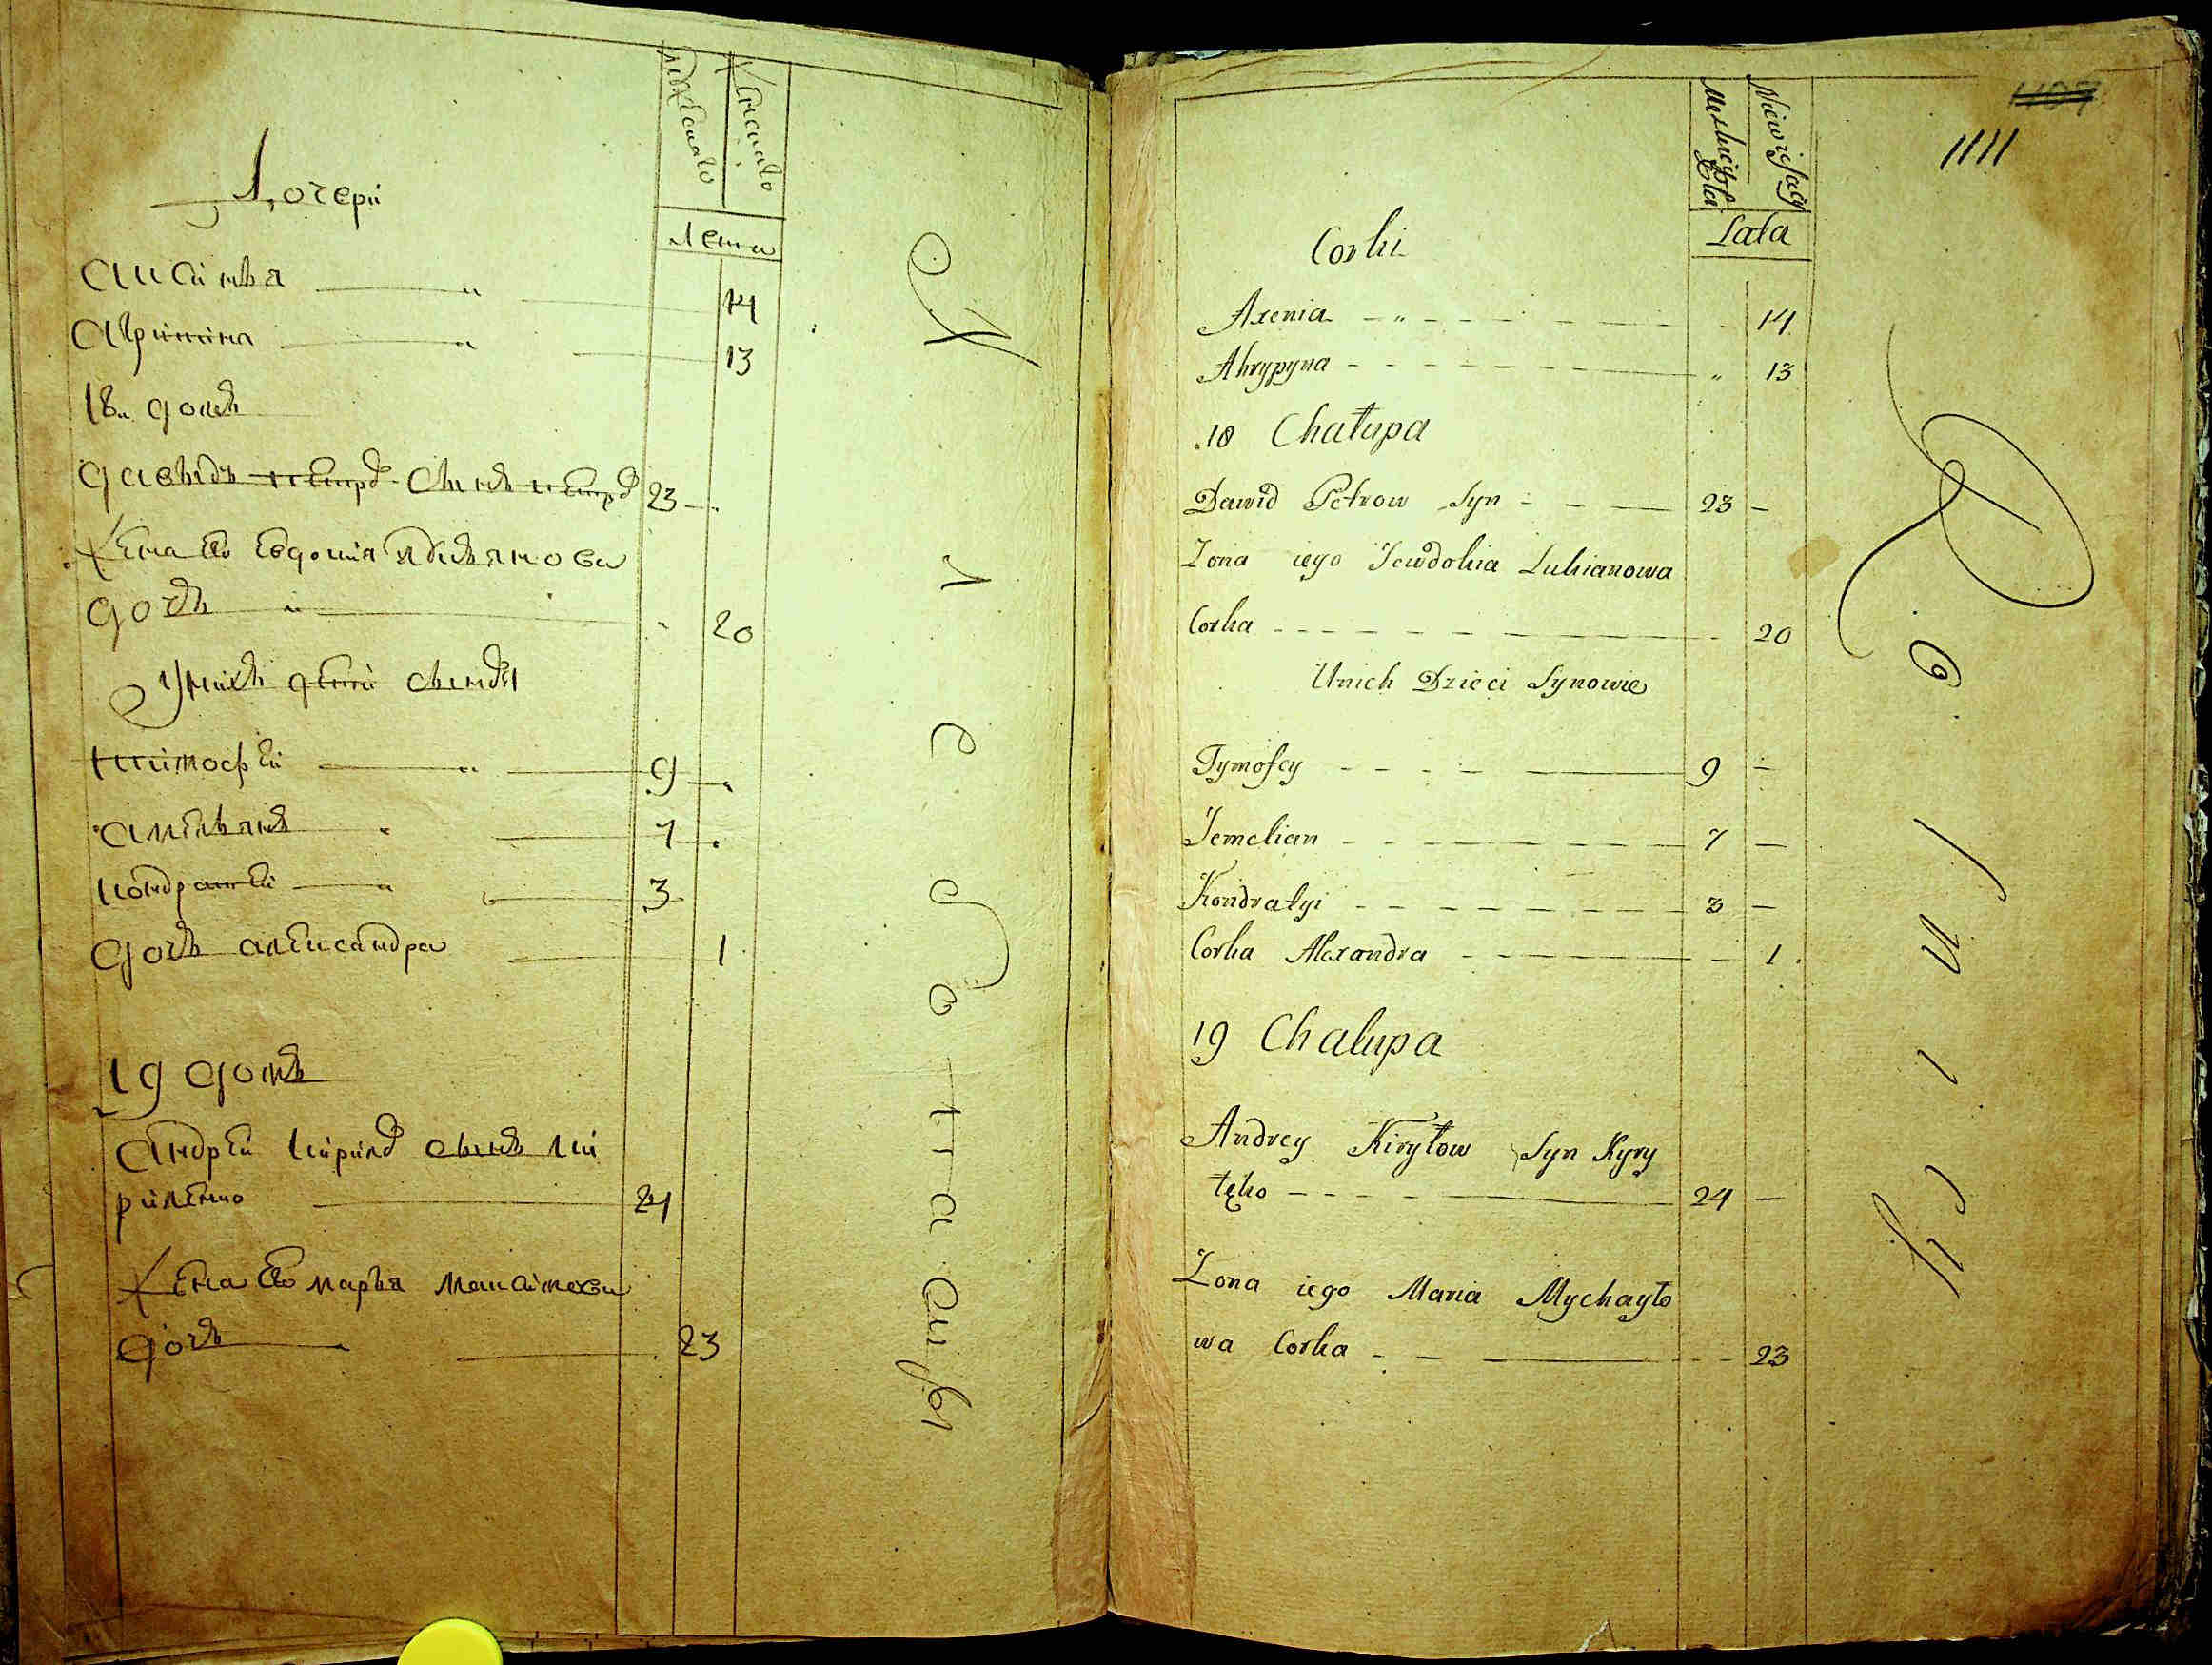 мужескаго
женскаго
лета
Дочери
аксинья 14
агрипина 13
18 домъ
давыдъ петровъ сынъ петров 23
жена его евдокия лукьянова
дочь 20
У них дети сыновья
тимофей 9
амельянъ 7
кондратей 3
дочь александра 1
19 домъ
андрей кирилов сынъ ки
риленко 24
жена его марья максимова
дочь 23
1111
Niewieściej
Lata
Corki
Axenia 14
Ahrypyna 13
18 Chałupa
Dawid Petrow Syn 23
Zona iego Jewdokia Lukianowa
Corka 20
Unich Dzieci Synowie
Tymofey 9
Jemelian 7
Kondratyi 3
Corka Alexandra 1
19 Chalupa
Andrey Kiryłow Syn Kyry
łęko 24
Zona iego Maria Mychayło
wa Corka 23